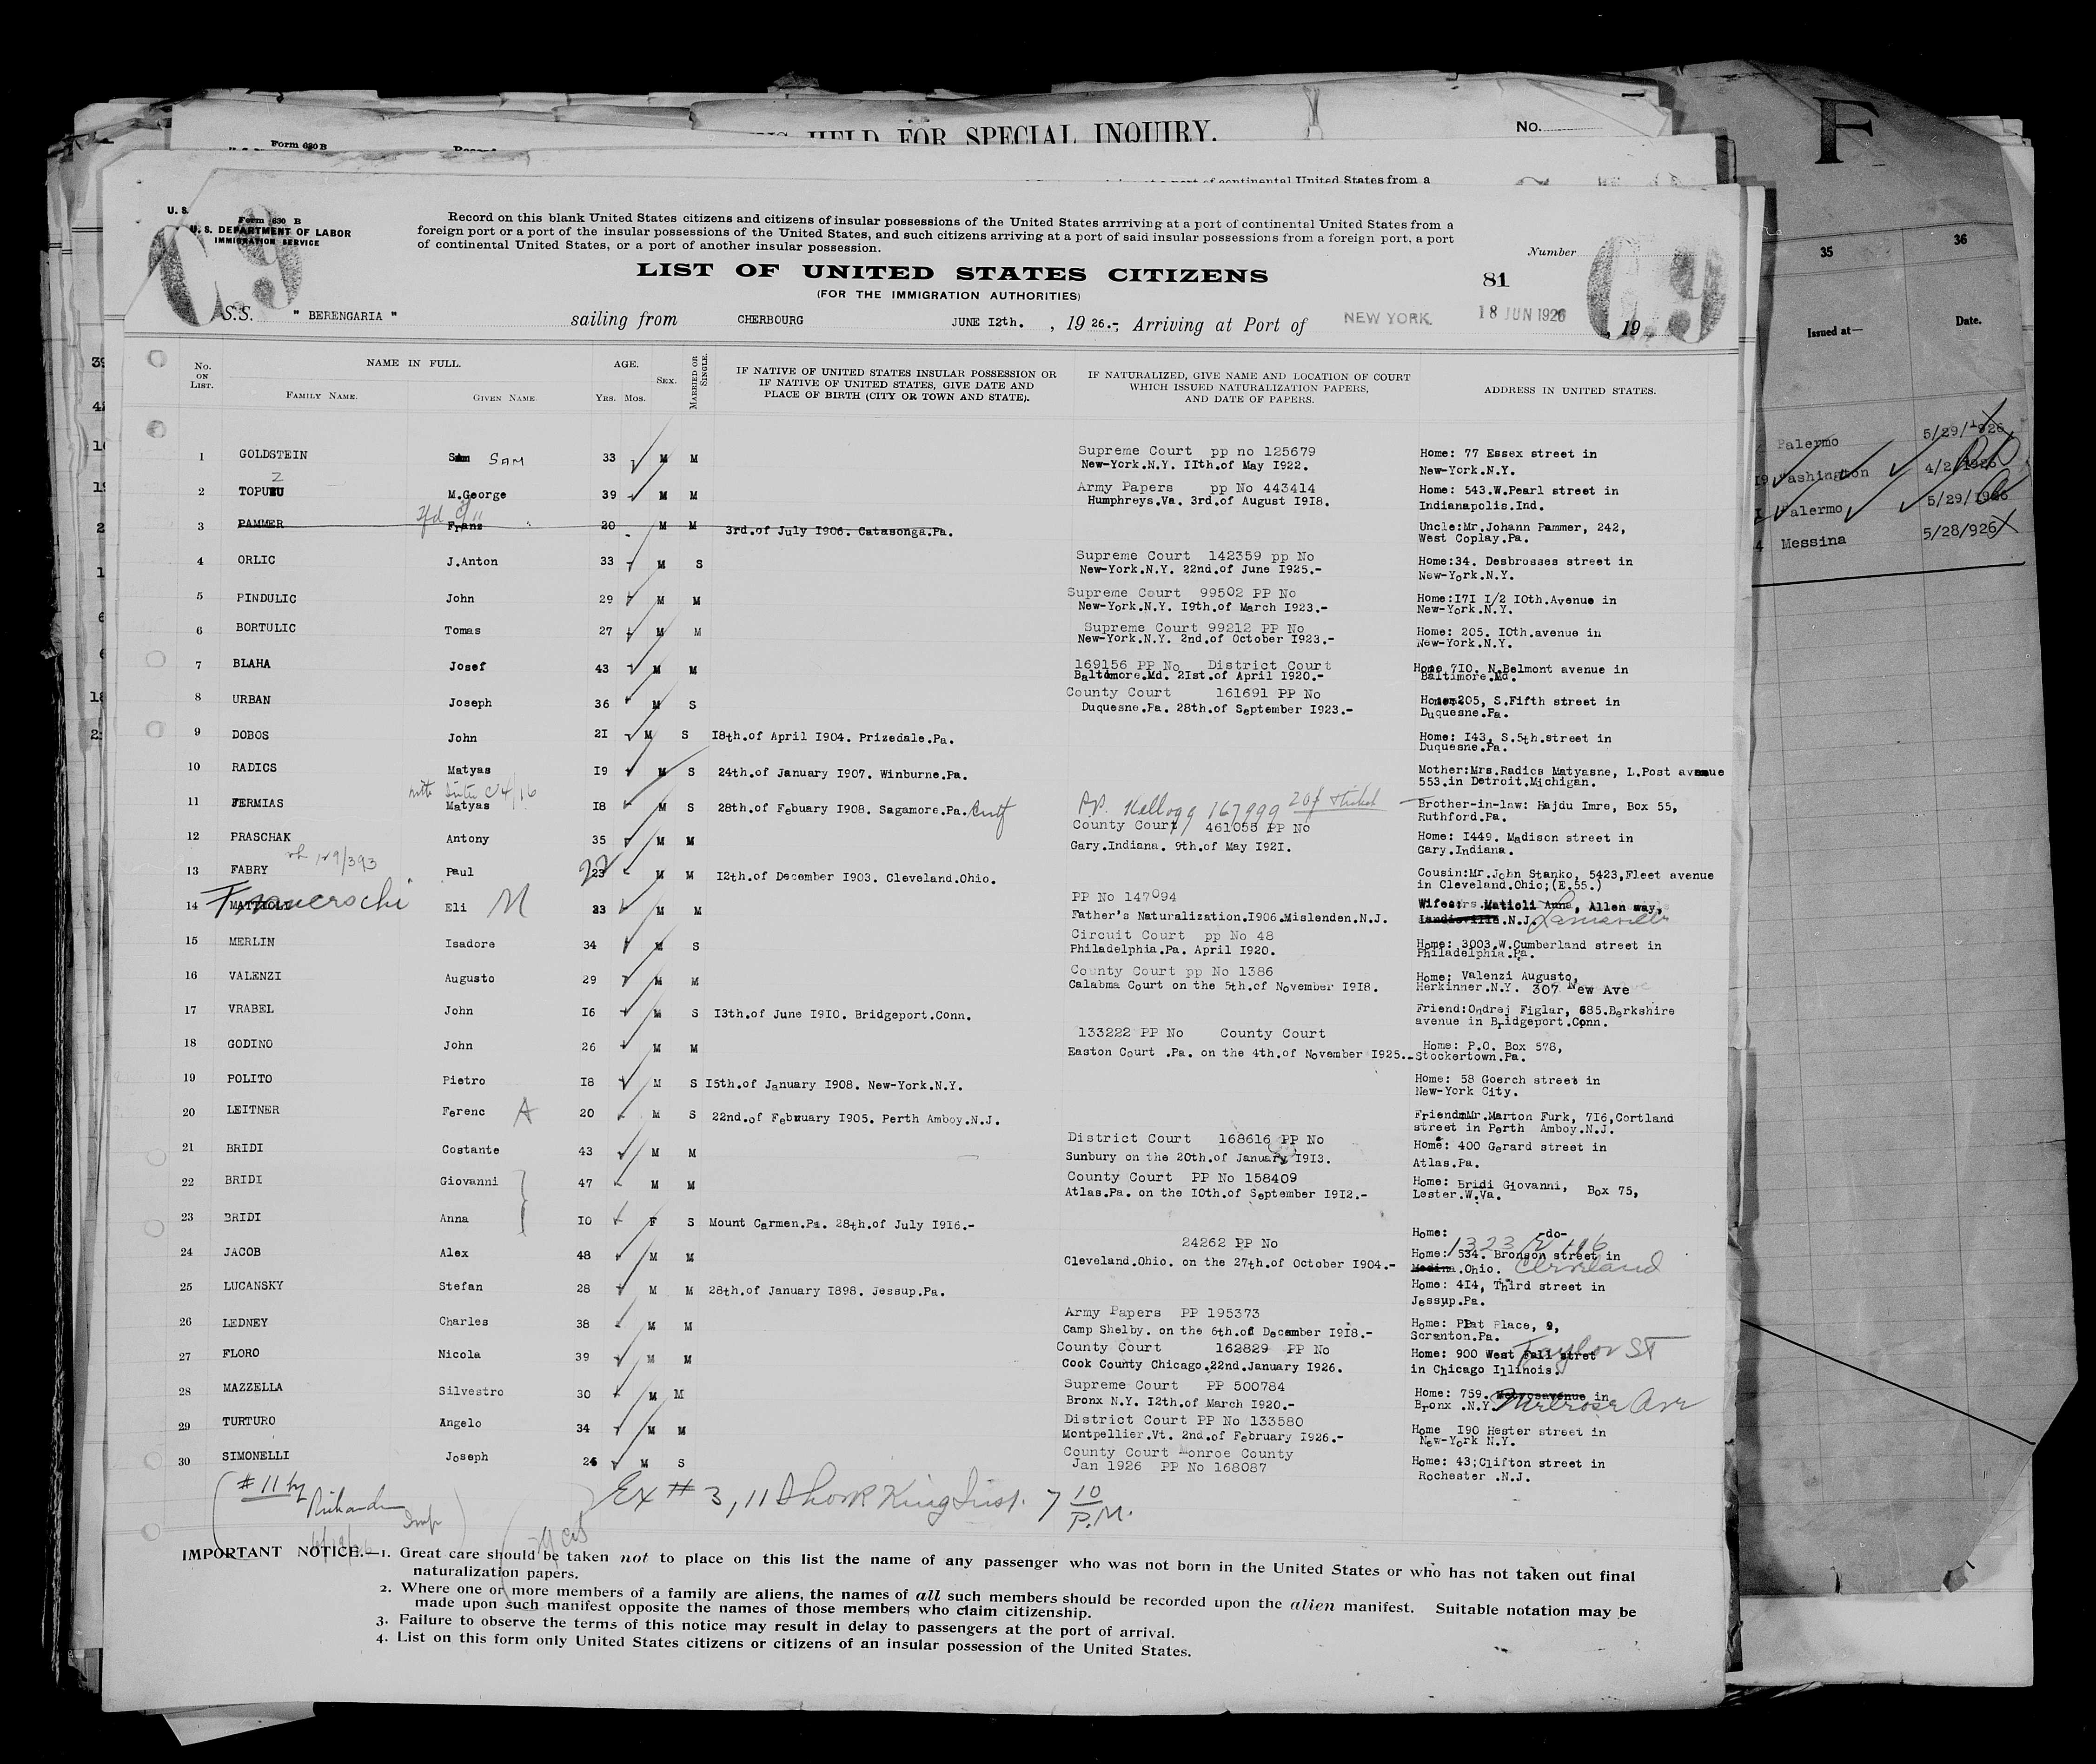 Form 630 B
HELD FOR SPECIAL INQUIRY.
No.
F
continental United States from a
U. S.
Form 630 B
U. S. DEPARTMENT OF LABOR
IMMIGRATION SERVICE
Record on this blank United States citizens and citizens of insular possessions of the United States arrriving at a port of continental United States from a
foreign port or a port of the insular possessions of the United States, and such citizens arriving at a port of said insular possessions from a foreign port, a port
of continental United States, or a port of another insular possession.
Number
LIST OF UNITED STATES CITIZENS
81
(FOR THE IMMIGRATION AUTHORITIES)
S.S. " BERENGARIA " sailing from CHERBOURG JUNE I2th. , 19 26.-, Arriving at Port of NEW YORK. 18 JUN 1926 , 19
No. ON LIST. NAME IN FULL. AGE. SEX. MARRIED OR SINGLE. IF NATIVE OF UNITED STATES INSULAR POSSESSION OR IF NATIVE OF UNITED STATES, GIVE DATE AND PLACE OF BIRTH (CITY OR TOWN AND STATE). IF NATURALIZED, GIVE NAME AND LOCATION OF COURT WHICH ISSUED NATURALIZATION PAPERS, AND DATE OF PAPERS. ADDRESS IN UNITED STATES.
FAMILY NAME. GIVEN NAME. YRS. MOS.
1 GOLDSTEIN Sam SAM 33 M M Supreme Court pp no 125679 Home: 77 Essex street in
New-York.N.Y. IIth.of May I922. New-York.N.Y.
Z
2 TOPU M.George 39 M M Army Papers pp No 443414 Home: 543.W.Pearl street in
Humphreys.Va. 3rd.of August I9I8. Indianapolis.Ind.
3 PAMMER Franz 20 M M 3rd.of July I906. Catasonga.Pa. Uncle:Mr.Johann Pammer, 242,
West Coplay.Pa.
4 ORLIC J.Anton 33 M S Supreme Court 142359 pp No Home:34. Desbrosses street in
New-York.N.Y. 22nd.of June I925.- New-York.N.Y.
5 PINDULIC John 29 M M Supreme Court 99502 PP No Home:I7I I/2 I0th.Avenue in
New-York.N.Y. I9th.of March I923.- New-York.N.Y.
6 BORTULIC Tomas 27 M M Supreme Court 99212 PP No Home: 205. I0th.avenue in
New-York.N.Y. 2nd.of October I923.- New-York.N.Y.
7 BLAHA Josef 43 M M 169156 PP No District Court Home 7I0. N.Belmont avenue in
Baltimore.Md. 2Ist.of April I920.- Baltimore.Md.
8 URBAN Joseph 36 M S County Court 161691 PP No Home 205, S.Fifth street in
Duquesne.Pa. 28th.of September I923.- Duquesne.Pa.
9 DOBOS John 2I M S I8th.of April I904. Prizedale.Pa. Home: I43, S.5th.street in
Duquesne.Pa.
10 RADICS Matyas I9 M S 24th.of January I907. Winburne.Pa. Mother:Mrs.Radics Matyasne, L.Post avenue
553.in Detroit.Michigan.
11 FERMIAS Matyas I8 M S 28th.of Febuary I908. Sagamore.Pa. P.P. Kellogg 167999 Brother-in-law: Hajdu Imre, Box 55,
Ruthford.Pa.
12 PRASCHAK Antony 35 M M County Court 461055 PP No Home: I449. Madison street in
Gary.Indiana. 9th.of May I92I. Gary.Indiana.
129/393
13 FABRY Paul 22 23 M M I2th.of December I903. Cleveland.Ohio. Cousin:Mr.John Stanko, 5423,Fleet avenue
in Cleveland.Ohio;(E.55.)
14 MATTIOLI Eli M 23 M M PP No 147094 Matioli Anna, Allen way,
Father's Naturalization.I906.Mislenden.N.J. N.J.
15 MERLIN Isadore 34 M S Circuit Court pp No 48 Home: 3003.W.Cumberland street in
Philadelphia.Pa. April I920. Philadelphia.Pa.
16 VALENZI Augusto 29 M M County Court pp No 1386 Home: Valenzi Augusto,
Calabma Court on the 5th.of November I9I8. Herkinner.N.Y. 307 New Ave
17 VRABEL John I6 M S I3th.of June I9I0. Bridgeport.Conn. Friend:Ondrej Figlar, 685.Berkshire
avenue in Bridgeport.Conn.
18 GODINO John 26 M M 133222 PP No County Court Home: P.O. Box 578,
Easton Court .Pa. on the 4th.of November I925.- Stockertown.Pa.
19 POLITO Pietro I8 M S I5th.of January I908. New-York.N.Y. Home: 58 Goerch street in
New-York City.
20 LEITNER Ferenc A 20 M S 22nd.of February I905. Perth Amboy.N.J. Friend Mr.Marton Furk, 7I6,Cortland
street in Perth Amboy.N.J.
21 BRIDI Costante 43 M M District Court 168616 PP No Home: 400 Gerard street in
Sunbury on the 20th.of January I9I3. Atlas.Pa.
22 BRIDI Giovanni 47 M M County Court PP No 158409 Home: Bridi Giovanni, Box 75,
Atlas.Pa. on the I0th.of September I9I2.- Lester.W.Va.
23 BRIDI Anna I0 F S Mount Carmen.Pa. 28th.of July I9I6.- Home: -do-
24 JACOB Alex 48 M M 24262 PP No Home: 534. Bronson street in
Cleveland.Ohio. on the 27th.of October I904.- Medina.Ohio. Cleveland
25 LUCANSKY Stefan 28 M M 28th.of January I898. Jessup.Pa. Home: 4I4, Third street in
Jessup.Pa.
26 LEDNEY Charles 38 M M Army Papers PP 195373 Home: Plat Place, 9,
Camp Shelby. on the 6th.of December I9I8.- Scranton.Pa.
27 FLORO Nicola 39 M M County Court 162829 PP No Home: 900 West Fall stret Taylor ST
Cook County Chicago.22nd.January I926. in Chicago Illinois.
28 MAZZELLA Silvestro 30 M M Supreme Court PP 500784 Home: 759. in
Bronx N.Y. I2th.of March I920.- Bronx .N.Y. Melrose Ave
29 TURTURO Angelo 34 M M District Court PP No 133580 Home I90 Hester street in
Montpellier.Vt. 2nd.of February I926.- New-York N.Y.
30 SIMONELLI Joseph 26 M S County Court Monroe County Home: 43;Clifton street in
Jan 1926 PP No 168087 Rochester .N.J.
# 11 by
Ex # 3, 11 King Insp. 7 10 P.M.
IMPORTANT NOTICE.—1. Great care should be taken not to place on this list the name of any passenger who was not born in the United States or who has not taken out final
naturalization papers.
2. Where one or more members of a family are aliens, the names of all such members should be recorded upon the alien manifest. Suitable notation may be
made upon such manifest opposite the names of those members who claim citizenship.
3. Failure to observe the terms of this notice may result in delay to passengers at the port of arrival.
4. List on this form only United States citizens or citizens of an insular possession of the United States.
35 36
Issued at— Date.
Palermo 5/29/1926
Washington 4/2/1926
Palermo 5/29/1926
Messina 5/28/926